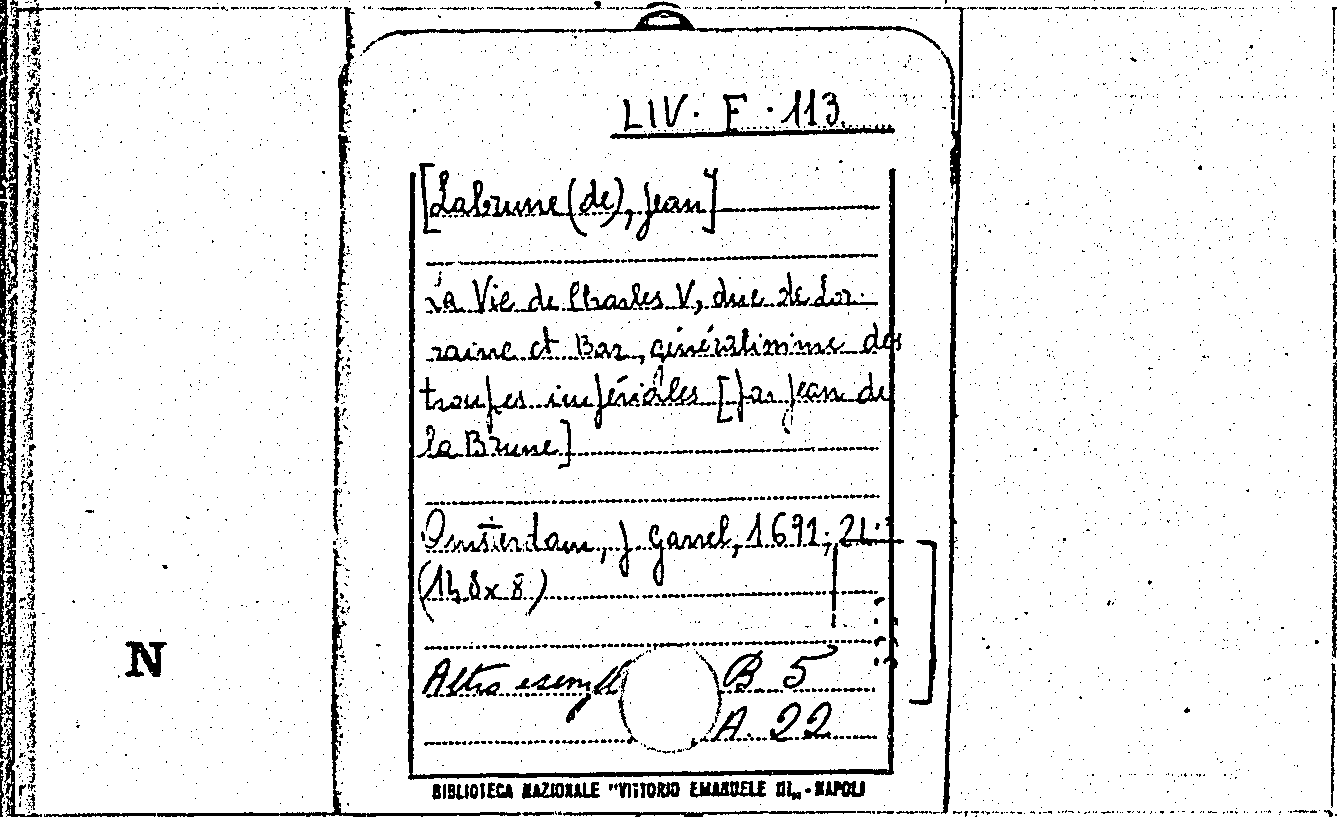 LIV. F. 113.
[Labrune (de), Jean]
La Vie de Charles V, duc de Lor-
raine et Bar, généralissime des
troupes impériales [par Jean de
la Brune]
Amsterdam, J. Garrel, 1691; 21.
N
Altro B 5
A. 22
BIBLIOTECA NAZIONALE "VITTORIO EMANUELE III„ - NAPOLI